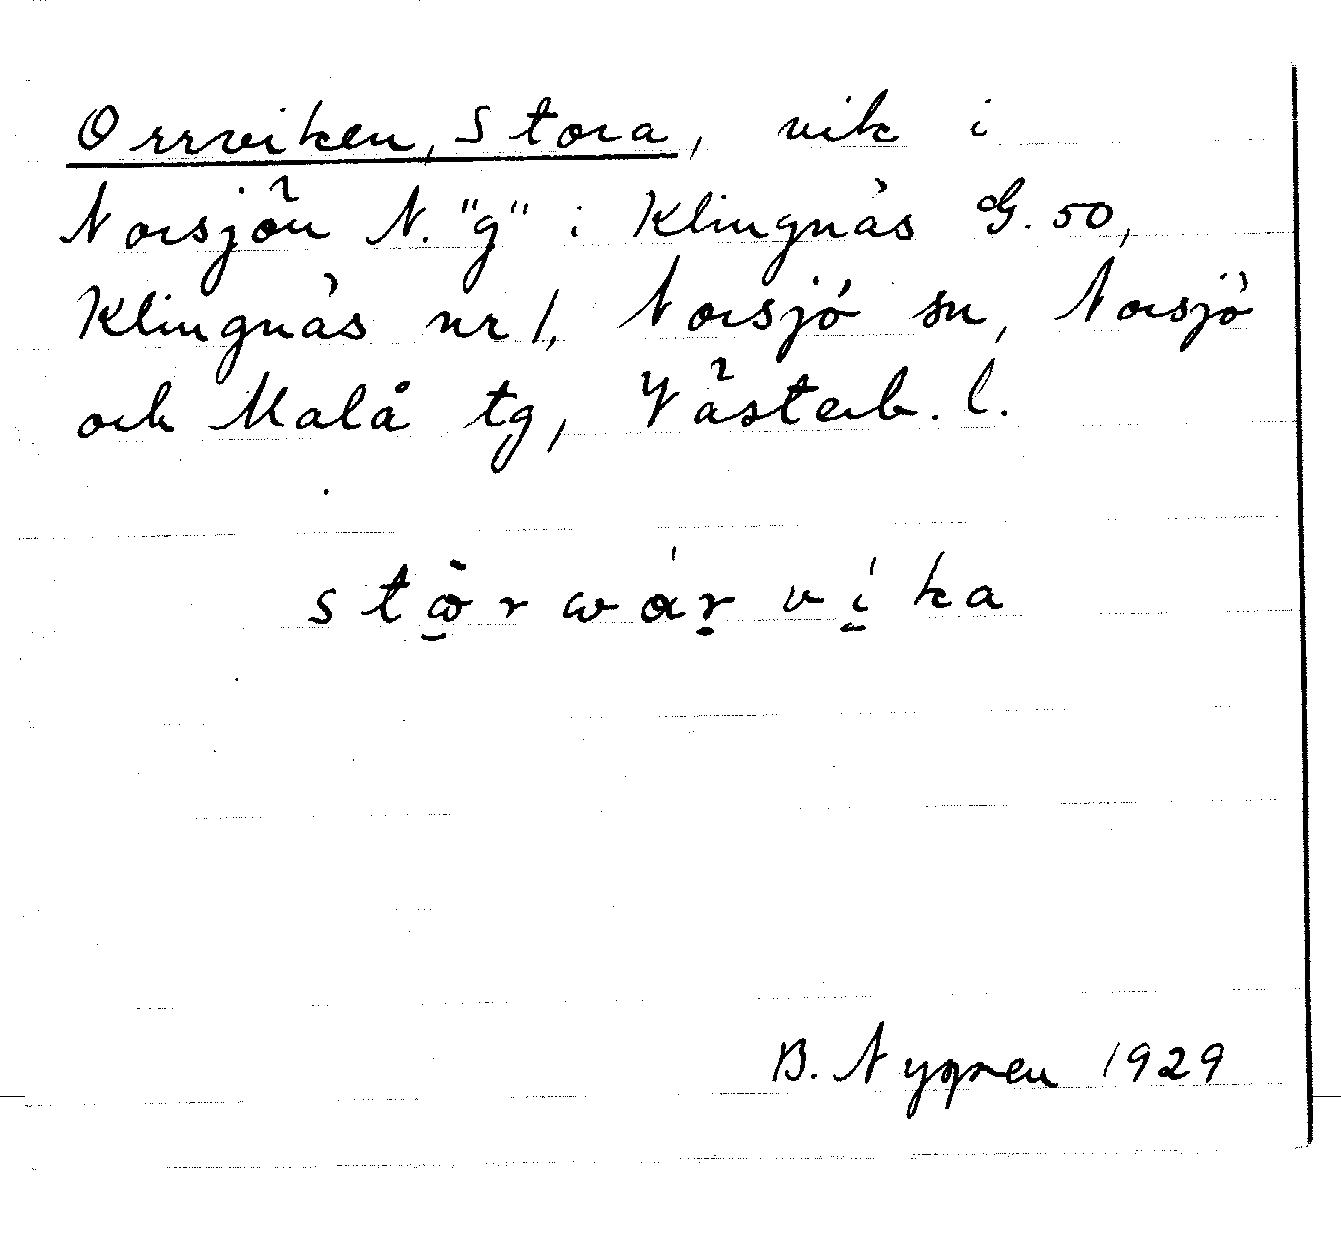 Orrviken, Stora, vik i
Norsjön N. "g" i Klingnäs G. 50,
Klingnäs nr 1, Norsjö sn, Norsjö
och Malå tg, Västerb. l.
B. Nygren 1929